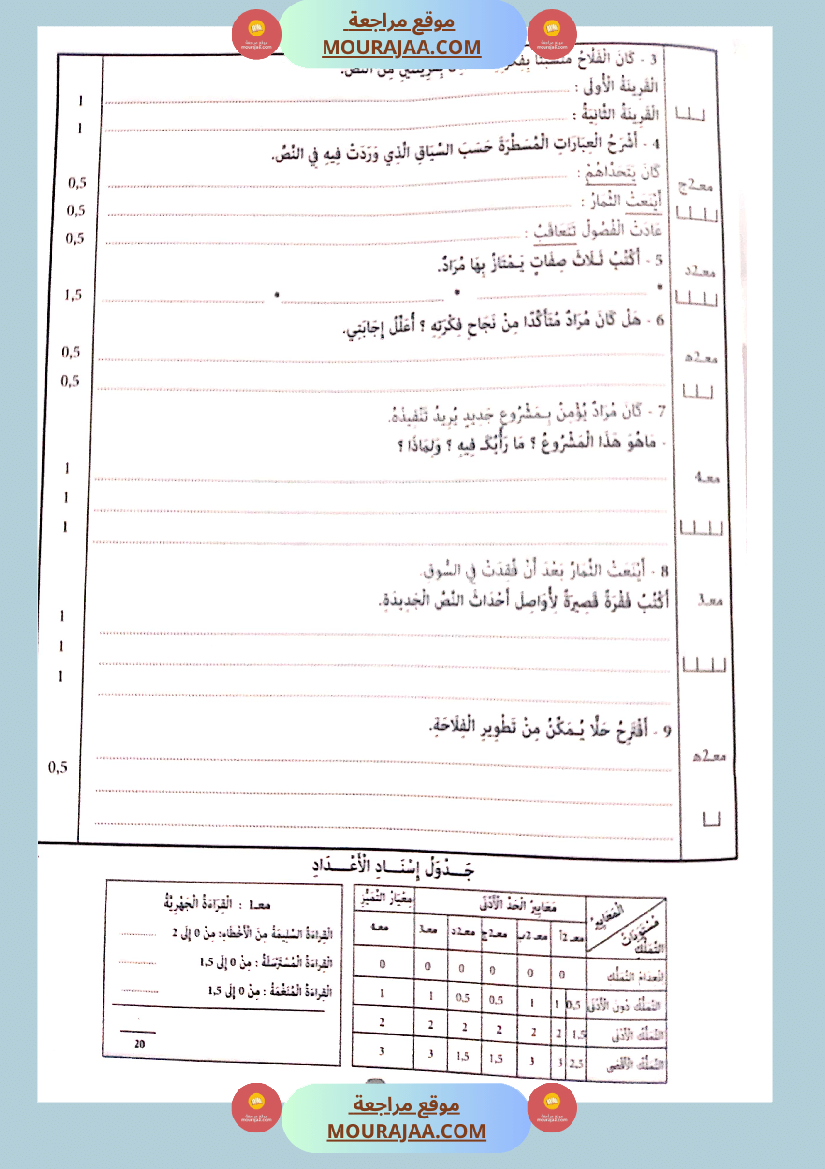 موقع مراجعة
MOURAJAA.COM
3 - كَانَ الْفَلَّاحُ
الْقَرِينَةُ الْأُولَى : 1
الْقَرِينَةُ الثَّانِيَةُ : 1
4 - أَشْرَحُ الْعِبَارَاتِ الْمُسَطَّرَةَ حَسَبَ السِّيَاقِ الَّذِي وَرَدَتْ فِيهِ فِي النَّصِّ.
كَانَ يَتَحَدَّاهُمْ : 0,5
معـ2ج
أَيْنَعَتْ الثِّمَارُ : 0,5
عَادَتْ الْفُصُولُ تَتَعَاقَبُ : 0,5
5 - أَكْتُبُ ثَـلَاثَ صِفَاتٍ يَـمْتَازُ بِهَا مُرَادٌ.
معـ2د
* * * 1,5
6 - هَلْ كَانَ مُرَادٌ مُتَأَكِّدًا مِنْ نَجَاحِ فِكْرَتِهِ ؟ أُعَلِّلُ إِجَابَتِي.
معـ2هـ
0,5
0,5
7 - كَانَ مُرَادٌ يُؤْمِنُ بِـمَشْرُوعٍ جَدِيدٍ يُرِيدُ تَنْفِيذَهُ.
- مَاهُوَ هَذَا الْمَشْرُوعُ ؟ مَا رَأْيُكَ فِيهِ ؟ وَلِمَاذَا ؟
معـ4
1
1
1
8 - أَيْنَعَتْ الثِّمَارُ بَعْدَ أَنْ فُقِدَتْ فِي السُّوقِ.
أَكْتُبُ فَقْرَةً قَصِيرَةً لِأُوَاصِلَ أَحْدَاثَ النَّصِّ الْجَدِيدَةِ.
معـ3
1
1
1
9 - أَقْتَرِحُ حَلًّا يُـمَكِّنُ مِنْ تَطْوِيرِ الْفِلَاحَةِ.
معـ2هـ
0,5
جَـدْوَلُ إِسْنَـادِ الْأَعْـدَادِ
الْمَعَايِيرُ مَعَايِيرُ الْحَدِّ الْأَدْنَى مِعْيَارُ التَّمَيُّزِ
مُسْتَوَيَاتُ التَّمَلُّكِ معـ2أ معـ2ب معـ2ج معـ2د معـ3 معـ4
انْعِدَامُ التَّمَلُّكِ 0 0 0 0 0 0
التَّمَلُّكُ دُونَ الْأَدْنَى 0,5 1 1 0,5 0,5 1 1
التَّمَلُّكُ الْأَدْنَى 1,5 2 2 2 2 2 2
التَّمَلُّكُ الْأَقْصَى 2,5 3 3 1,5 1,5 3 3
معـ1 : الْقِرَاءَةُ الْجَهْرِيَّةُ
الْقِرَاءَةُ السَّلِيمَةُ مِنَ الْأَخْطَاءِ: مِنْ 0 إِلَى 2
الْقِرَاءَةُ الْمُسْتَرْسَلَةُ : مِنْ 0 إِلَى 1,5
الْقِرَاءَةُ الْمُنَغَّمَةُ : مِنْ 0 إِلَى 1,5
20
موقع مراجعة
MOURAJAA.COM